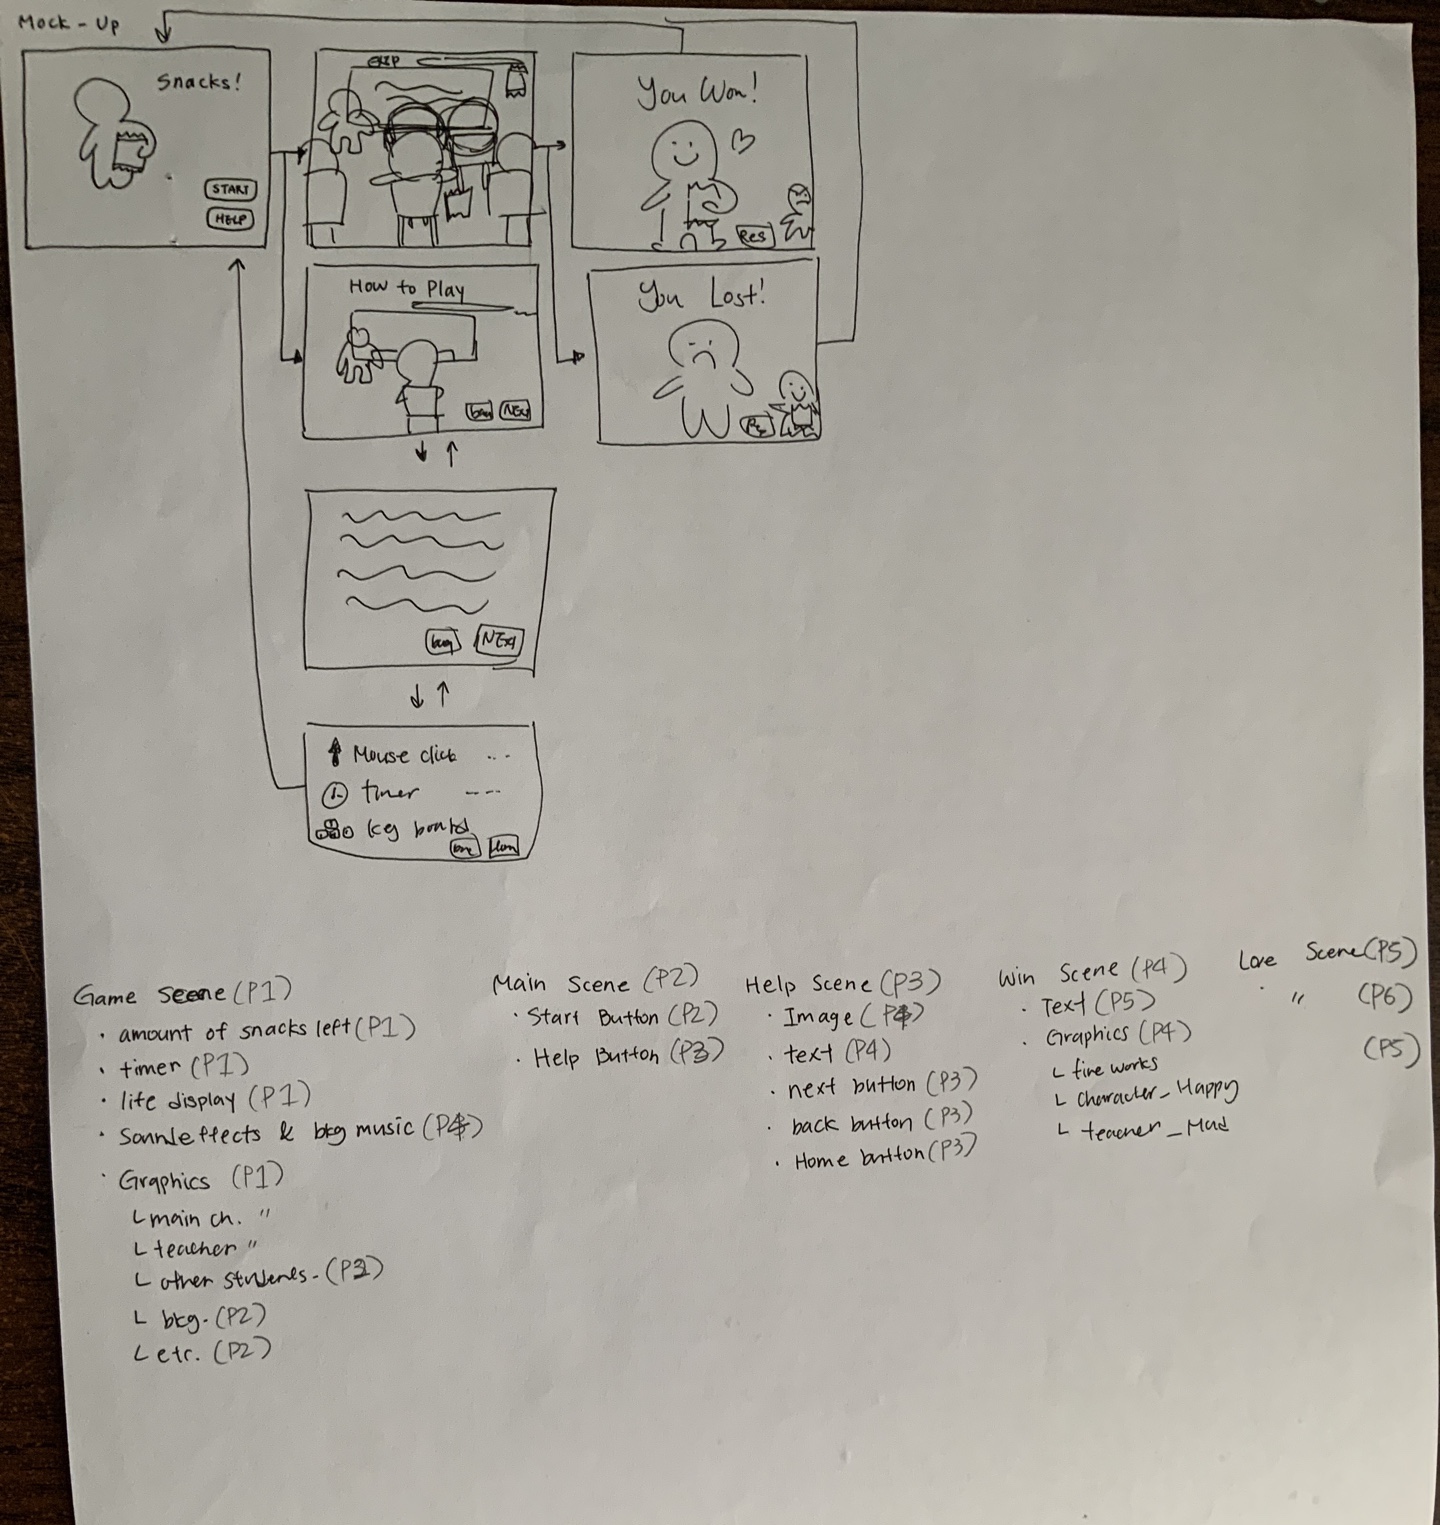 Mock-Up
Snacks!
START
HELP
You Won!
Res
How to Play
NExt
You Lost!
Re
NExt
Mouse click ...
timer ---
key board
Game Scene (P1)
· amount of snacks left (P1)
· timer (P1)
· life display (P1)
· Sound effects & bkg music (P4)
· Graphics (P1)
└ main ch. "
└ teacher "
└ other students - (P2)
└ bkg. (P2)
└ etc. (P2)
Main Scene (P2)
· Start Button (P2)
· Help Button (P3)
Help Scene (P3)
· Image (P4)
· text (P4)
· next button (P3)
· back button (P3)
· Home button (P3)
Win Scene (P4)
· Text (P5)
· Graphics (P4)
└ fire works
└ Character_Happy
└ teacher_Mad
Lose Scene (P5)
· " (P6)
(P5)